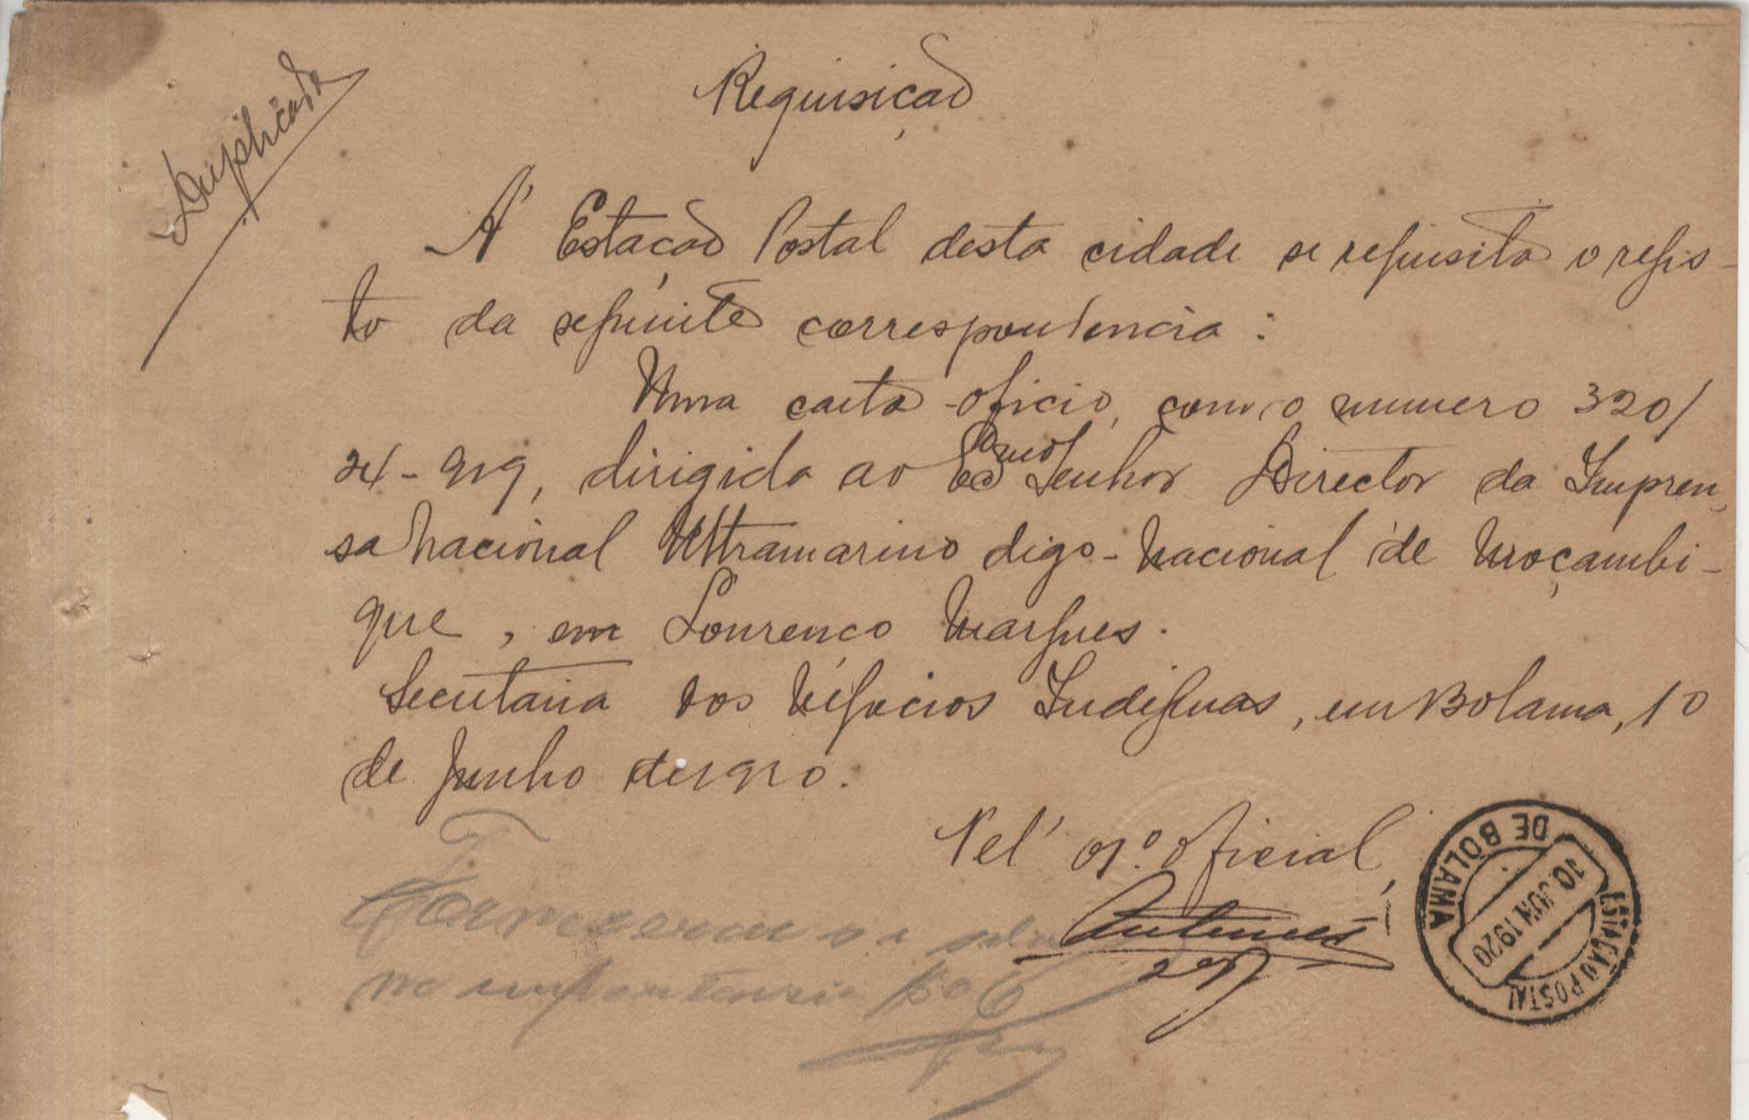 Duplicado
Requisição
Á Estação Postal desta cidade se requisita o regis-
to da seguinte correspondencia :
Uma carta-oficio, com o numero 320/
24-919, dirigida ao Exmo Senhor Director da Impren,
sa Nacional Ultramarino digo-Nacional de Moçambi-
que, em Lourenço Marques.
Secretaria dos Negocios Indigenas, em Bolama, 10
de Junho de 1920.
Pel' o 1.º oficial,
Antunes
ESTAÇÃO POSTAL DE BOLAMA
10 JUN 1920